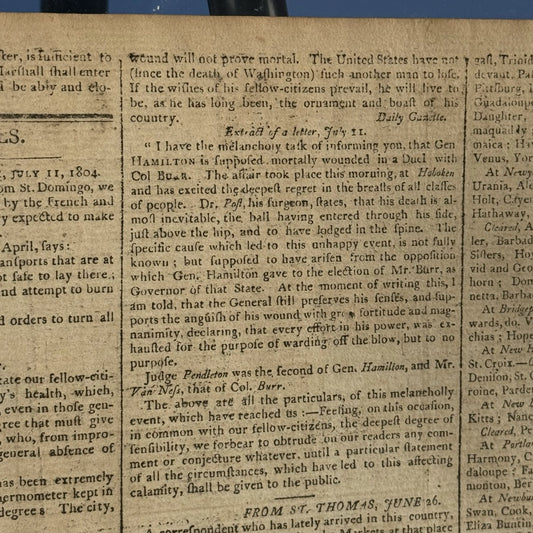 ter, is sufficient to
Marshall shall enter
d be ably and elo-
ES.
, JULY 11, 1804.
om St. Domingo, we
by the French and
y expected to make
April, says:
ansports that are at
ot safe to lay there;
and attempt to burn
d orders to turn all
tate our fellow-citi-
y's health, which,
, even in those gen-
gree that must give
, who, from impro-
general absence of
as been extremely
hermometer kept in
degrees The city,
wound will not prove mortal. The United States have not
(since the death of Washington) such another man to lose.
If the wishes of his fellow-citizens prevail, he will live to
be, as he has long been, the ornament and boast of his
country. Daily Gazette.
Extract of a letter, July 11.
" I have the melancholy task of informing you, that Gen
HAMILTON is supposed mortally wounded in a Duel with
Col BURR. The affair took place this morning, at Hoboken
and has excited the deepest regret in the breasts of all classes
of people. Dr. Post, his surgeon, states, that his death is al-
most inevitable, the ball having entered through his side,
just above the hip, and to have lodged in the spine. The
specific cause which led to this unhappy event, is not fully
known; but supposed to have arisen from the opposition
which Gen. Hamilton gave to the election of Mr. Burr, as
Governor of that State. At the moment of writing this, I
am told, that the General still preserves his senses, and sup-
ports the anguish of his wound with great fortitude and mag-
nanimity, declaring, that every effort in his power, was ex-
hausted for the purpose of warding off the blow, but to no
purpose.
Judge Pendleton was the second of Gen. Hamilton, and Mr.
Van Ness, that of Col. Burr.
The above are all the particulars, of this melancholly
event, which have reached us :—Feeling, on this occasion,
in common with our fellow-citizens, the deepest degree of
sensibility, we forbear to obtrude on our readers any com-
ment or conjecture whatever, until a particular statement
of all the circumstances, which have led to this affecting
calamity, shall be given to the public.
FROM ST. THOMAS, JUNE 26.
A correspondent who has lately arrived in this country,
Markets at that place
gast, Trinid
devant. Pa
Pittsburg, l
Guadaloupe
Daughter,
maquadly
maica; Ha
Venus, Yor
At New
Urania, Ale
Holt, C.fye
Hathaway,
Cleared, A
ler, Barbad
Sisters, Ho
vid and Geo
horn; Don
netta, Barba
At Bridgep
wards, do. V
chias; Hope
At New H
St. Croix.—C
Denison, St. C
roine, Parde
At New
Kitts; Nanc
Cleared, Pe
At Portlan
Harmony, C
daloupe; Fa
monton, Ber
At Newbu
Swan, Cook,
Eliza Buntin